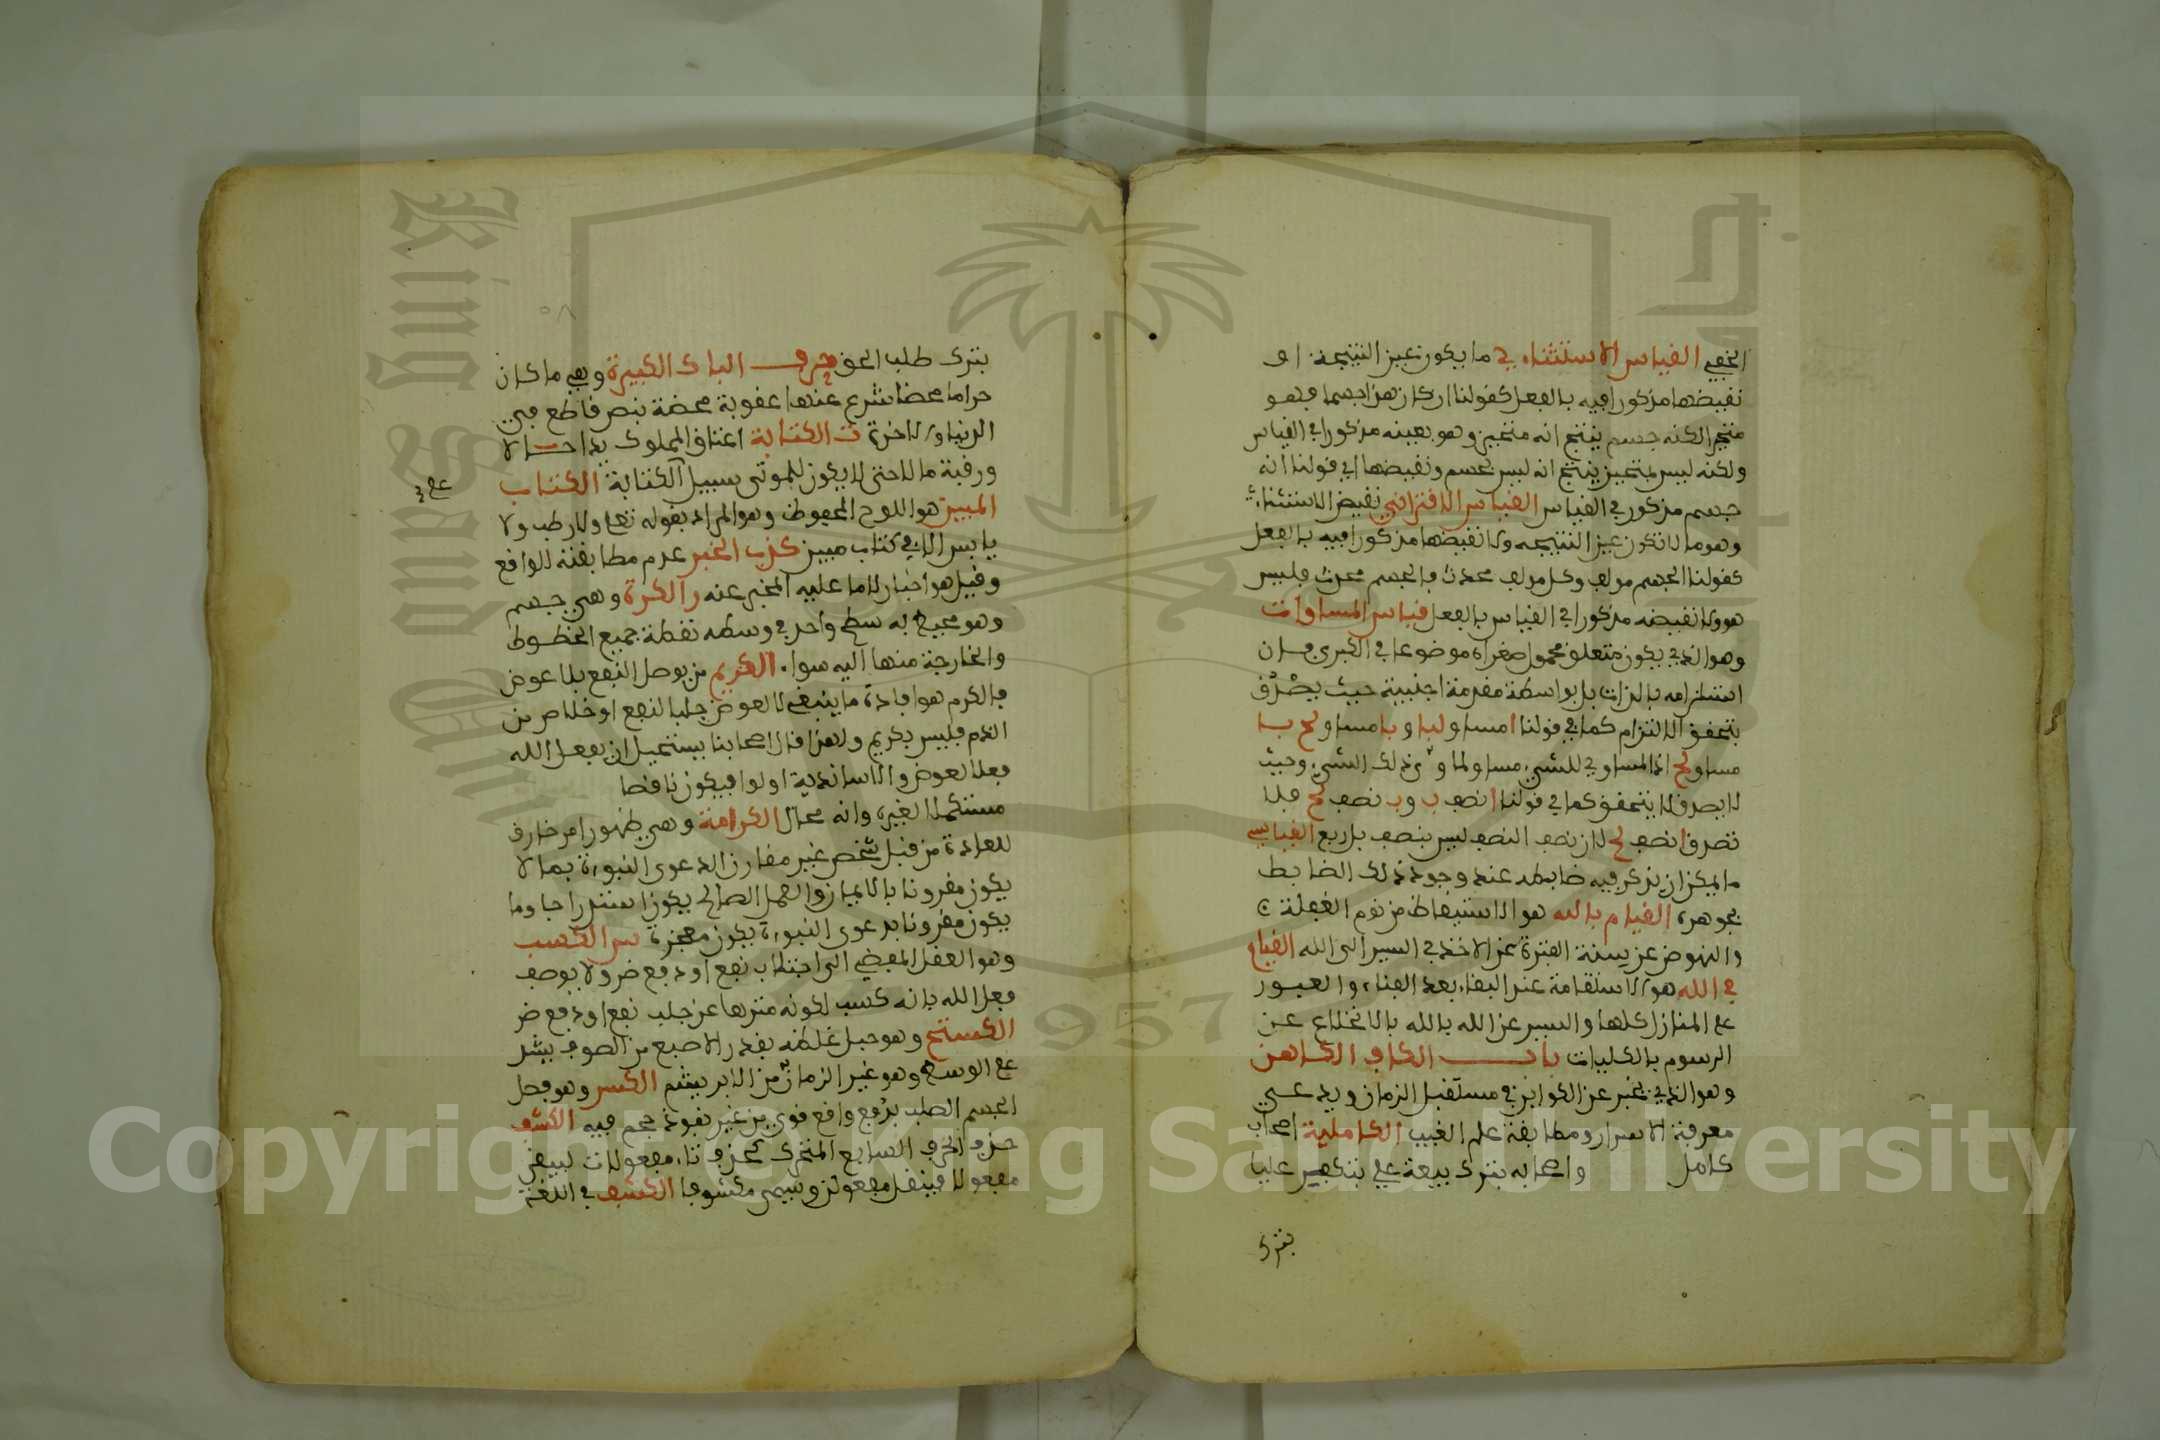 الخفي القياس الاستثناءي ما يكون عين النتيجة او
نقيضها مذكورا فيه بالفعل كقولنا ان كان هذا جسما فهو
متحيز لكنه جسم ينتج انه متحيز وهو بعينه مذكورا في القياس
ولكنه ليس بمتحيز ينتج انه ليس بجسم ونقيضها اي قولنا انه
جسم مذكور في القياس القياس الاقتراني نقيض الاستثناءي
وهو ما لا تكون عين النتيجة ولا نقيضها مذكورا فيه بالفعل
كقولنا الجسم مولف وكل مولف محدث فالجسم محدث فليس
هو ولا نقيضه مذكورا في القياس بالفعل قياس المساوات
وهو الذي يكون متعلق محمول صغراه موضوعا في الكبرى فان
استلزامه بالذات بل بواسطة مقدمة اجنبية حيث يصدق
بتحقق الالتزام كما في قولنا ا مساو لبا وبا مساو لج با
مساو لج اذ المساوي للشيء مساو لما و ذلك الشيء وحيث
لا يصدق لا يتحقق كما في قولنا ا نصف ب وب نصف لج فلا
تصدق ا نصف لج لان نصف النصف ليس بنصف بل ربع القياسي
ما يمكن ان يذكر فيه ضابطه عند وجود ذلك الضابط
بجوهره القيام بالله هو الاستيقاظ من نوم الغفلة
والنهوض عن سنة الفترة عن الاخذ في السير الى الله القيام
في الله هو الاستقامة عند البقاء بعد الفناء والعبور
على المنازل كلها والسير عن الله بالله بالانخلاع عن
الرسوم بالكليات باب الكاف الكاهن
وهو الذي يخبر عن الكواين في مستقبل الزمان ويدعي
معرفة الاسرار ومطابقة علم الغيب الكاملية اصحاب
كامل واصحابه بترك بيعة علي بتكفير عليا
بترك
بترك طلب الحق حرف الباء الكبيرة وهي ما كان
حراما محضا شرع عنها عقوبة محضة بنص قاطع في
الدنيا والاخرة ت الكتابة اعتاق المملوك يدا حالا
ورقبة مالا حتى لا يكون للموتى سبيل الكتابة الكتاب
المبين هو اللوح المحفوظ وهو المراد بقوله تعا ولا رطب ولا
يابس الا في كتاب مبين كذب الخبر عدم مطابقته للواقع
وقيل هو اخبار لا ما عليه المخبر عنه ر الكرة وهي جسم
وهو محيط به سطح واحد في وسطه نقطة جميع الخطوط
والخارجة منها اليه سواء الكريم من يوصل النفع بلا عوض
فالكرم هو افادة ما ينبغي لا لعوض جلبا لنفع او خلاص من
الذم فليس بكريم ولهذا قال اصحابنا يستحيل ان يفعل الله
فعلا لعوض والا اولوا فيكون ناقصا
مستكملا لغيره وانه محال الكرامة وهي ظهور امر خارق
للعادة من قبل شخص غير مقارن لدعوى النبوءة بما لا
يكون مقرونا بالايمان والعمل الصالح يكون استدراجا وما
يكون مقرونا بدعوى النبوءة يكون معجزة س الكسب
وهو الفعل المفضي الى اجتلاب نفع او دفع ضر ولا يوصف
فعل الله بانه كسب لكونه منزها عن جلب نفع او دفع ضر
الكستيج وهو حبل غلظه بقدر الاصبع من الصوف يشد
على الوسط وهو غير الزمان من الابريشم الكسر وهو فصل
الجسم الصلب بدفع دافع قوي من غير نفوذ حجم فيه الكشف
حذف الحرف السابع المتحرك كحذف تاء مفعولات ليبقى
مفعولا فينقل مفعولن ويسمى مكشوفا الكشف في اللغة
957
King Saud University
Copyright © King Saud University